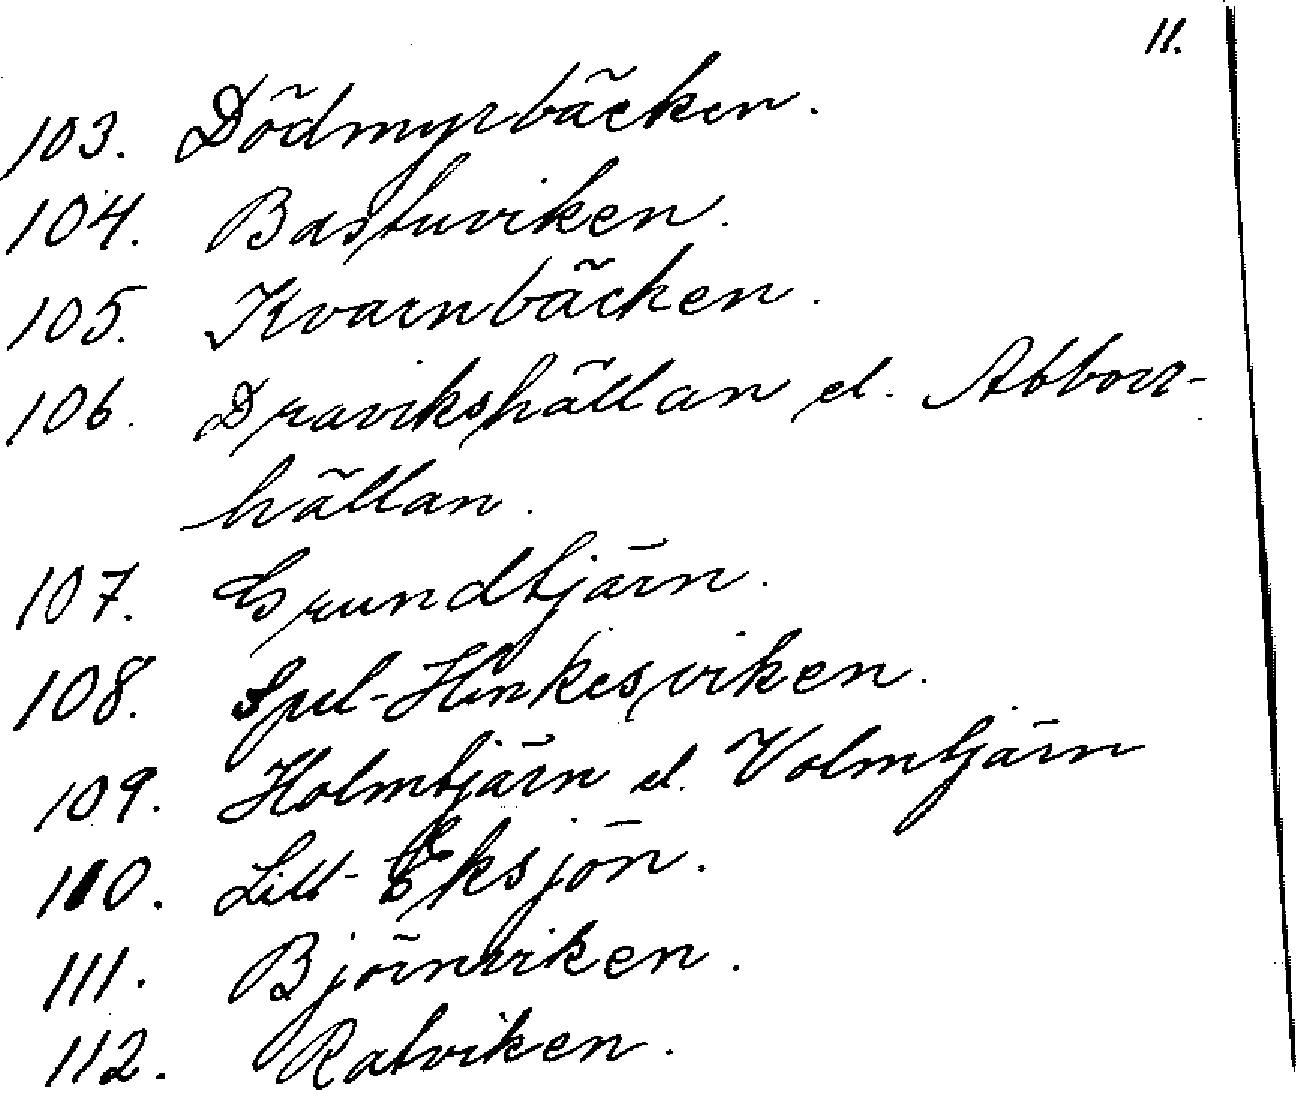 11.
103. Dödmyrbäcken.
104. Bastuviken.
105. Kvarnbäcken.
106. Dravikshällan el. Abborr-
hällan.
107. Grundtjärn.
108. Spel-Hinkesviken.
109. Holmtjärn el. Volmtjärn
110. Lill-Eksjön.
111. Björnviken.
112. Ratviken.